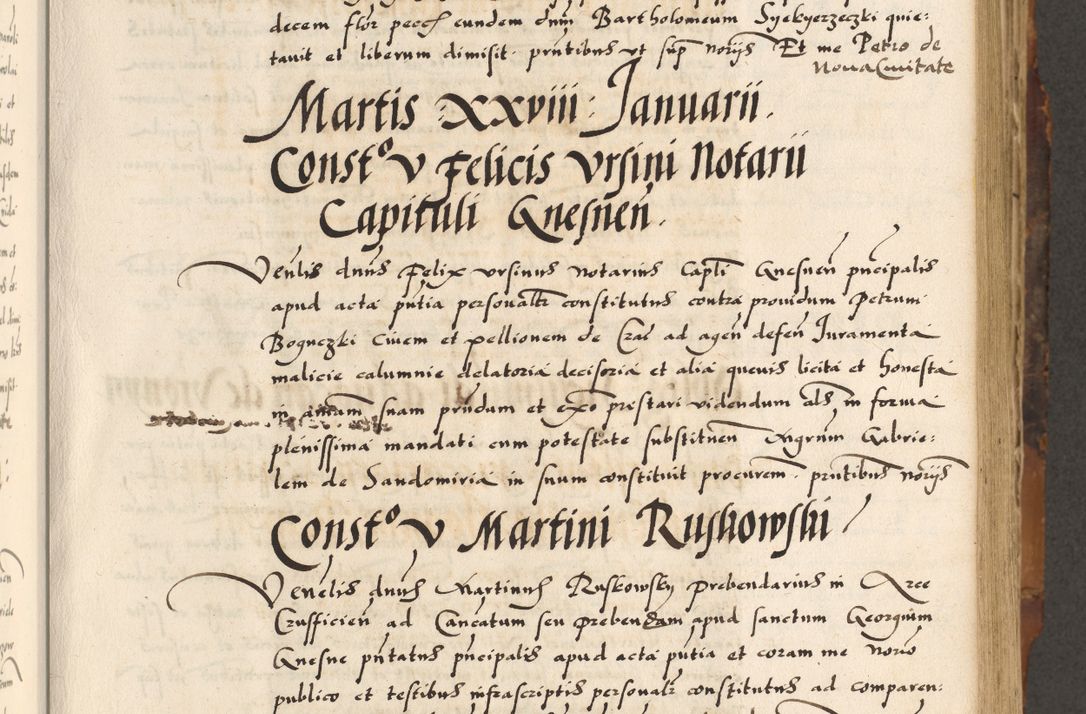 decem flor pecch eundem dnm Bartholomeum Syekyerzeczki quie:
tauit et liberum dimisit. pntibus vt sup norijs Et me Petro de
Noua Ciuitate
Martis XXviii Ianuarii.
Constº v Felicis Vrsini Notarii
Capituli Gnesnen.
Venlis dnus Felix vrsinus notarius Capli Gnesnen pncipalis
apud acta pntia personalr constitutus contra prouidum Petrum
Boguczki Ciuem et pellionem de Cra ad agen defen Iuramenta
malicie calumnie delatoria decisoria et alia queuis licita et honesta
in animam suam prndum et exº prestari videndum als in forma
plenissima mandati cum potestate substituen Mgrum Gabrie:
lem de Sandomiria in suum constituit procurem. pntibus norijs
Constº v Martini Ruskowski
Venelis dnus Martinus Ruskowsky prebendarius in Arce
Crusficien ad Cancatum seu prebendam apud sanctum Georgium
Gnesne pntatus pncipalis apud acta pntia et coram me Norio
publico et testibus infrascriptis personalr constitutus ad comparen: